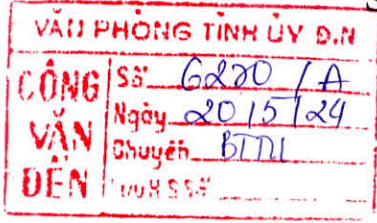 VĂN PHÒNG TỈNH ỦY Đ.N
CÔNG VĂN ĐẾN
Số 6280 / A
Ngày 20/5/24
Chuyển BTTU